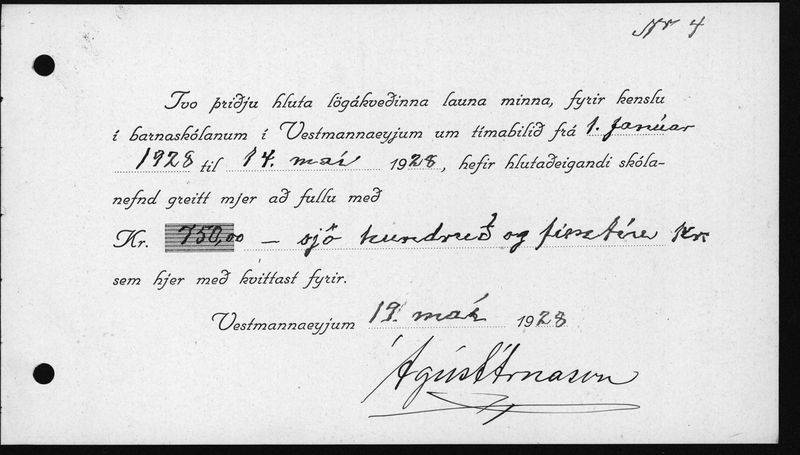 Nr 4
Tvo þriðju hluta lögákveðinna launa minna, fyrir kenslu
í barnaskólanum í Vestmannaeyjum um tímabilið frá 1. janúar
1928 til 14. maí 1928, hefir hlutaðeigandi skóla-
nefnd greitt mjer að fullu með
Kr. 750,00 — sjö hundruð og fimmtíu kr.
sem hjer með kvittast fyrir.
Vestmannaeyjum 19. maí 1928
Ágúst Árnason